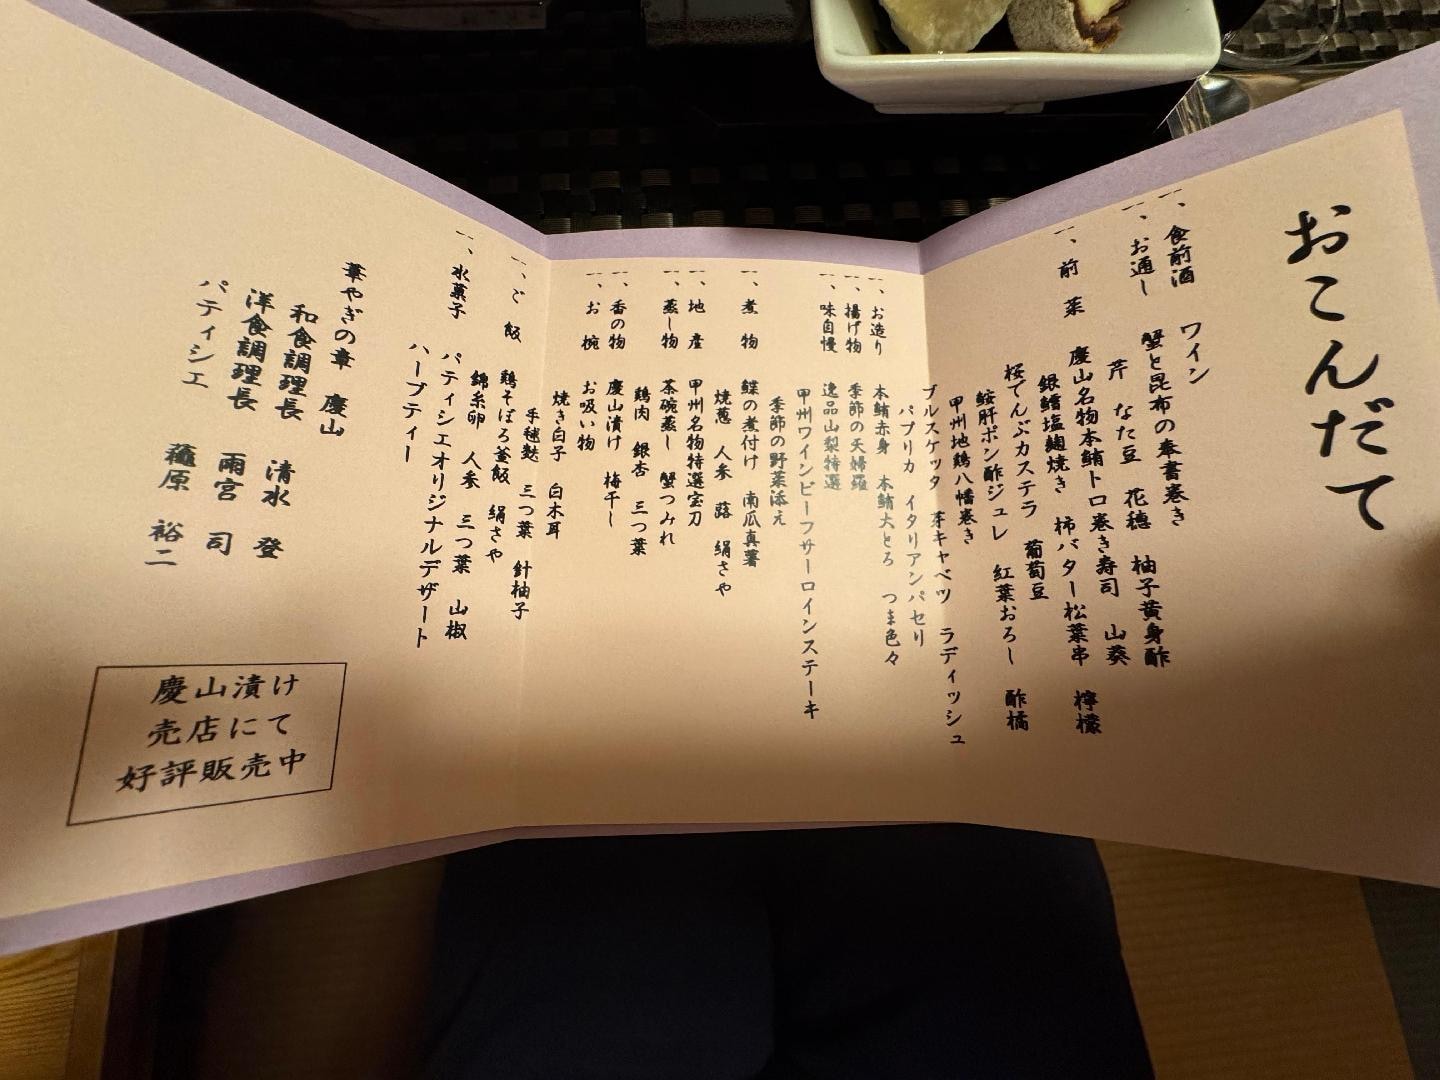 おこんだて
一、食前酒　ワイン
一、お通し　蟹と昆布の奉書巻き
芹　なた豆　花穂　柚子黄身酢
一、前菜　慶山名物本鮪トロ巻き寿司　山葵
銀鱈塩麹焼き　柿バター松葉串　檸檬
桜でんぶカステラ　葡萄豆
鮟肝ポン酢ジュレ　紅葉おろし　酢橘
甲州地鶏八幡巻き
ブルスケッタ　芽キャベツ　ラディッシュ
パプリカ　イタリアンパセリ
一、お造り　本鮪赤身　本鮪大とろ　つま色々
一、揚げ物　季節の天婦羅
一、味自慢　逸品山梨特選
甲州ワインビーフサーロインステーキ
季節の野菜添え
一、煮物　鰈の煮付け　南瓜真薯
焼葱　人参　蕗　絹さや
一、地産　甲州名物特選宝刀
一、蒸し物　茶碗蒸し　蟹つみれ
鶏肉　銀杏　三つ葉
一、香の物　慶山漬け　梅干し
一、お椀　お吸い物
焼き白子　白木耳
手毬麩　三つ葉　針柚子
一、ご飯　鶏そぼろ釜飯　絹さや
錦糸卵　人参　三つ葉　山椒
一、水菓子　パティシエオリジナルデザート
ハーブティー
華やぎの章　慶山
和食調理長　清水　登
洋食調理長　雨宮　司
パティシエ　蘓原　裕二
慶山漬け
売店にて
好評販売中